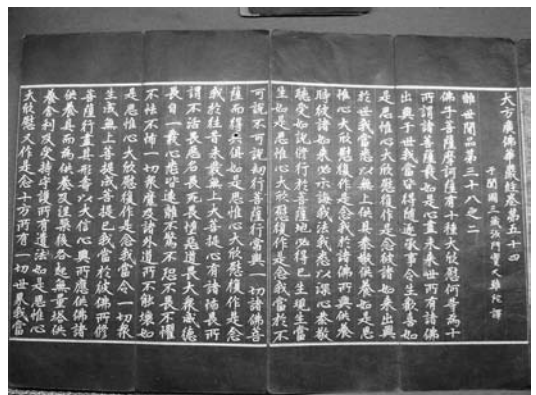 大方廣佛華嚴經卷第五十四
離世間品第三十八之二
于闐國三藏沙門實叉難陀 譯
佛子菩薩摩訶薩有十種大欣慰何等為十
所謂諸菩薩發如是心盡未來世所有諸佛
出興于世我當皆得隨逐承事令生歡喜如
是思惟心大欣慰復作是念彼諸如來出興
於世我當悉以無上供具恭敬供養如是思
惟心大欣慰復作是念我於諸佛所興供養
時彼諸如來必示誨我法我悉以深心恭敬
聽受如說修行於菩薩地必得已生現生當
生如是思惟心大欣慰復作是念我當於不
可說不可說劫行菩薩行常與一切諸佛菩
薩而得共俱如是思惟心大欣慰復作是念
我於往昔未發無上大菩提心有諸怖畏所
謂不活畏惡名畏死畏墮惡道畏大眾威德
畏自一發心悉皆遠離不驚不恐不畏不懼
不怯不怖一切眾魔及諸外道所不能壞如
是思惟心大欣慰復作是念我當令一切眾
生成無上菩提成菩提已我當於彼佛所修
菩薩行盡其形壽以大信心興所應供佛諸
供養具而為供養及涅槃後各起無量塔供
養舍利及受持守護所有遺法如是思惟心
大欣慰又作是念十方所有一切世界我當